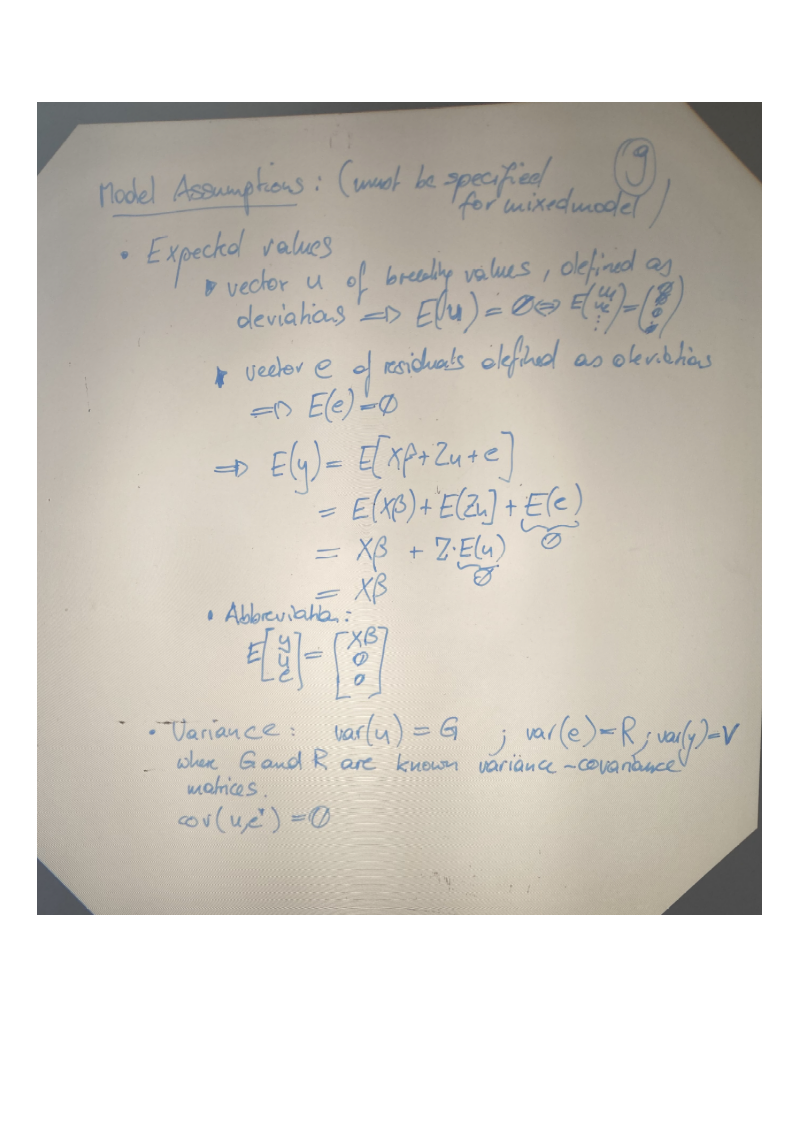 9
Model Assumptions: (must be specified
for mixed model)
• Expected values
▸ vector u of breeding values, defined as
deviations => E(u) = 0 <=> E(u₁ u₂ ⋮) = (0 0 0 0)
▸ vector e of residuals defined as deviations
=> E(e) = 0
=> E(y) = E[Xβ + Zu + e]
= E(Xβ) + E[Zu] + E(e)
0
= Xβ + Z·E(u)
0
= Xβ
• Abbreviation:
E[y u e] = [Xβ 0 0]
• Variance: var(u) = G ; var(e) = R ; var(y) = V
where G and R are known variance-covariance
matrices.
cov(u,eᵀ) = 0